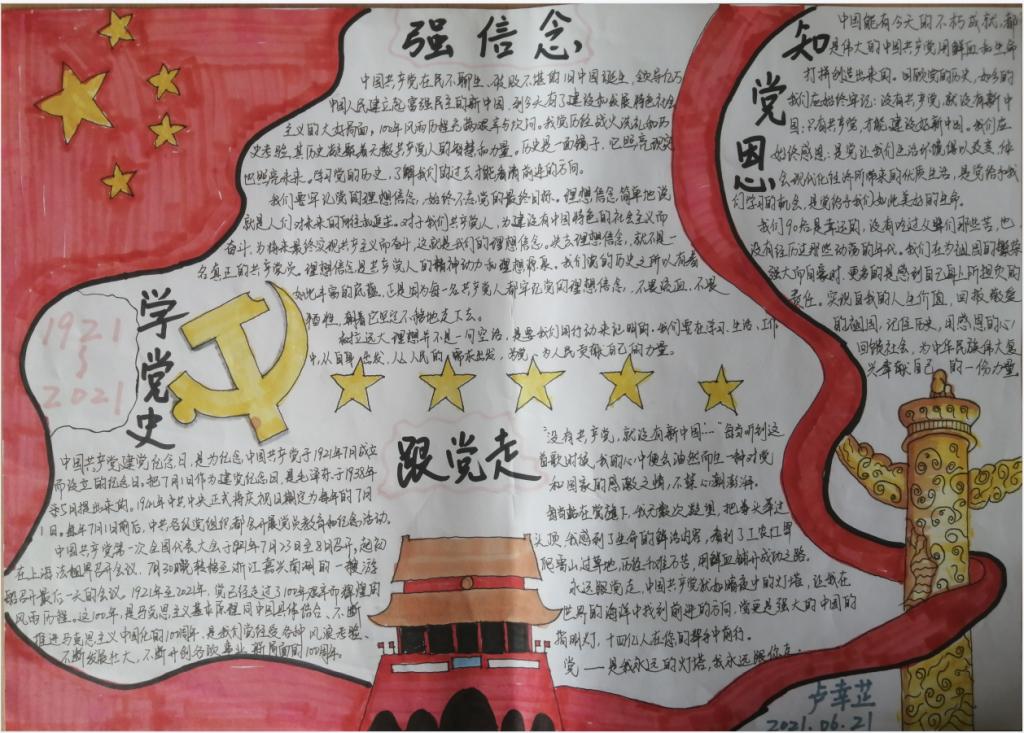 强信念
中国共产党在民不聊生、破败不堪的旧中国诞生,领导亿万
中国人民建立起富强民主的新中国,到今天有了建设和发展特色社会
主义的大好局面,100年风雨历程充满艰辛与坎坷。我党历经战火洗礼和历
史考验,其历史凝聚着无数共产党人的智慧和力量。历史是一面镜子,它照亮现实,
也照亮未来。学习党的历史,了解我们的过去才能看清前进的方向。
我们要牢记党的理想信念,始终不忘党的最终目标。理想信念简单地说
就是人们对未来的向往和追求。对于我们共产党人,为建设有中国特色的社会主义而
奋斗,为将来最终实现共产主义而奋斗,这就是我们的理想信念。失去理想信念,就不是一
名真正的共产党党。理想信念是共产党人的精神动力和理想源泉。我们党的历史之所以有着
如此丰富的底蕴,正是因为每一名共产党人都牢记党的理想信念,不畏流血,不畏
牺牲,朝着它坚定不移地走下去。
树立远大理想并不是一句空话,是要我们用行动来证明的。我们要在学习、生活、工作
中,从自身出发,从人民的需求出发,为党、为人民贡献自己的力量。
知党恩
中国能有今天的不朽成就,都
是伟大的中国共产党用鲜血和生命
打拼创造出来的。回顾党的历史,如今的
我们应始终牢记:没有共产党,就没有新中
国;只有共产党,才能建设好新中国。我们应
始终感恩:是党让我们生活环境得以改善,体
会现代化经济所带来的优质生活,是党给予我
们学习的机会,是党给予我们如此美好的生命。
我们90后是幸运的,没有吃过父辈们那些苦,也
没有经历过那些动荡的年代。我们在为祖国的繁荣
强大而自豪时,更多的是感到自己肩上所担负的
责任。实现自我的人生价值,回报敬爱
的祖国,记住历史,用感恩的心
回馈社会,为中华民族伟大复
兴奉献自己的一份力量
学党史
1921
~
2021
中国共产党建党纪念日,是为纪念中国共产党于1921年7月成立
而设立的纪念日。把7月1日作为建党纪念日,是毛泽东于1938年
5月提出来的。1941年中共中央正式将庆祝日期定为每年的7月
1日。每年7月1日前后,中共各级党组织都会开展党员教育和纪念活动。
中国共产党第一次全国代表大会于1921年7月23日至8月召开,起初
在上海法租界召开会议,7月30晚转移至浙江嘉兴南湖的一艘游
船召开最后一天的会议。1921年至2021年,党已经走过了100年艰辛而辉煌的
风雨历程。这100年,是马克思主义基本原理同中国具体结合、不断
推进马克思主义中国化的100周年,是我们党经受各种风浪考验、
不断发展壮大,不断开创各项事业新局面的100周年。
跟党走
“没有共产党,就没有新中国…”每当听到这
首歌时候,我的心中便会油然而生一种对党
和国家的感激之情,不禁心潮澎湃。
每当站在党旗下,我无数次遐想,把拳头举过
头顶,我感到了生命的鲜活内容,看到了工农红军
爬雪山过草地,历经千难万苦,用鲜血铺开成功之路。
永远跟党走,中国共产党就如暗夜中的灯塔,让我在
世界的海洋中找到前进的方向,党更是强大的中国的
指明灯,十四亿人在您的带领中前行。
党——是我永远的灯塔,我永远跟你走。
卢幸芷
2021.06.21